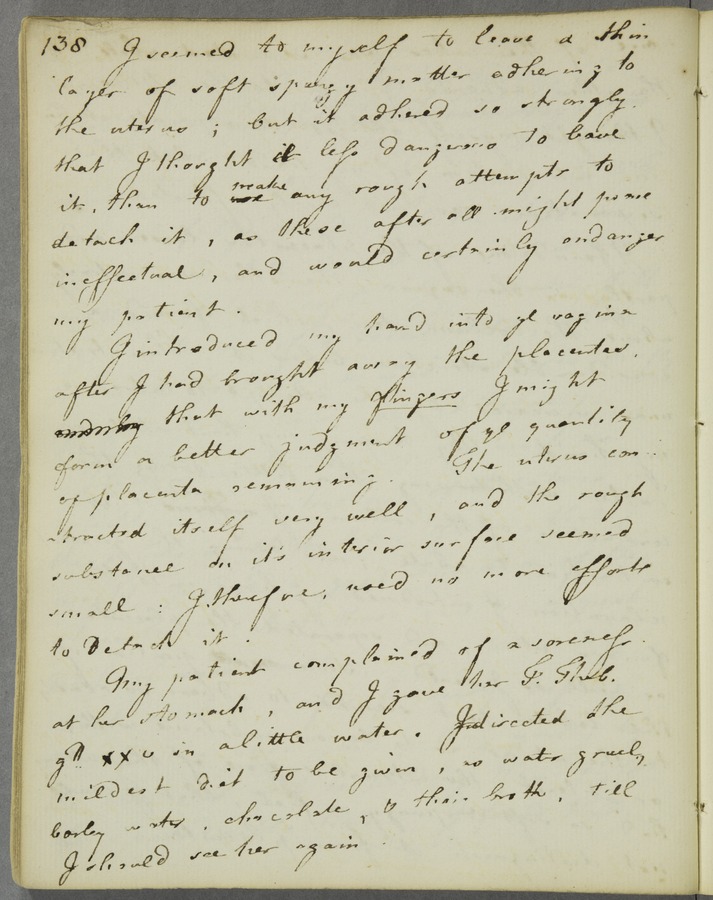 138 I seemed to myself to leave a thin
layer of soft spungy matter adhering to
the uterus ; but it adhered so strongly
that I thought it less dangerous to leave
it, than to make any rough attempts to
detach it, as these after all might prove
ineffectual, and would certainly endanger
my patient.
I introduced my hand into ye vagina
after I had brought away the placenta,
that with my fingers I might
form a better judgment of ye quantity
of placenta remaining. The uterus con-
-tracted itself very well, and the rough
substance on it's interior surface seemed
small : I therefore, used no more efforts
to Detach it.
My patient complained of a soreness
at her stomach, and I gave her T. Theb.
gtt xxv in a little water. I directed the
mildest diet to be given, as water gruel,
barley water, chocolate, & thin broth, till
I should see her again